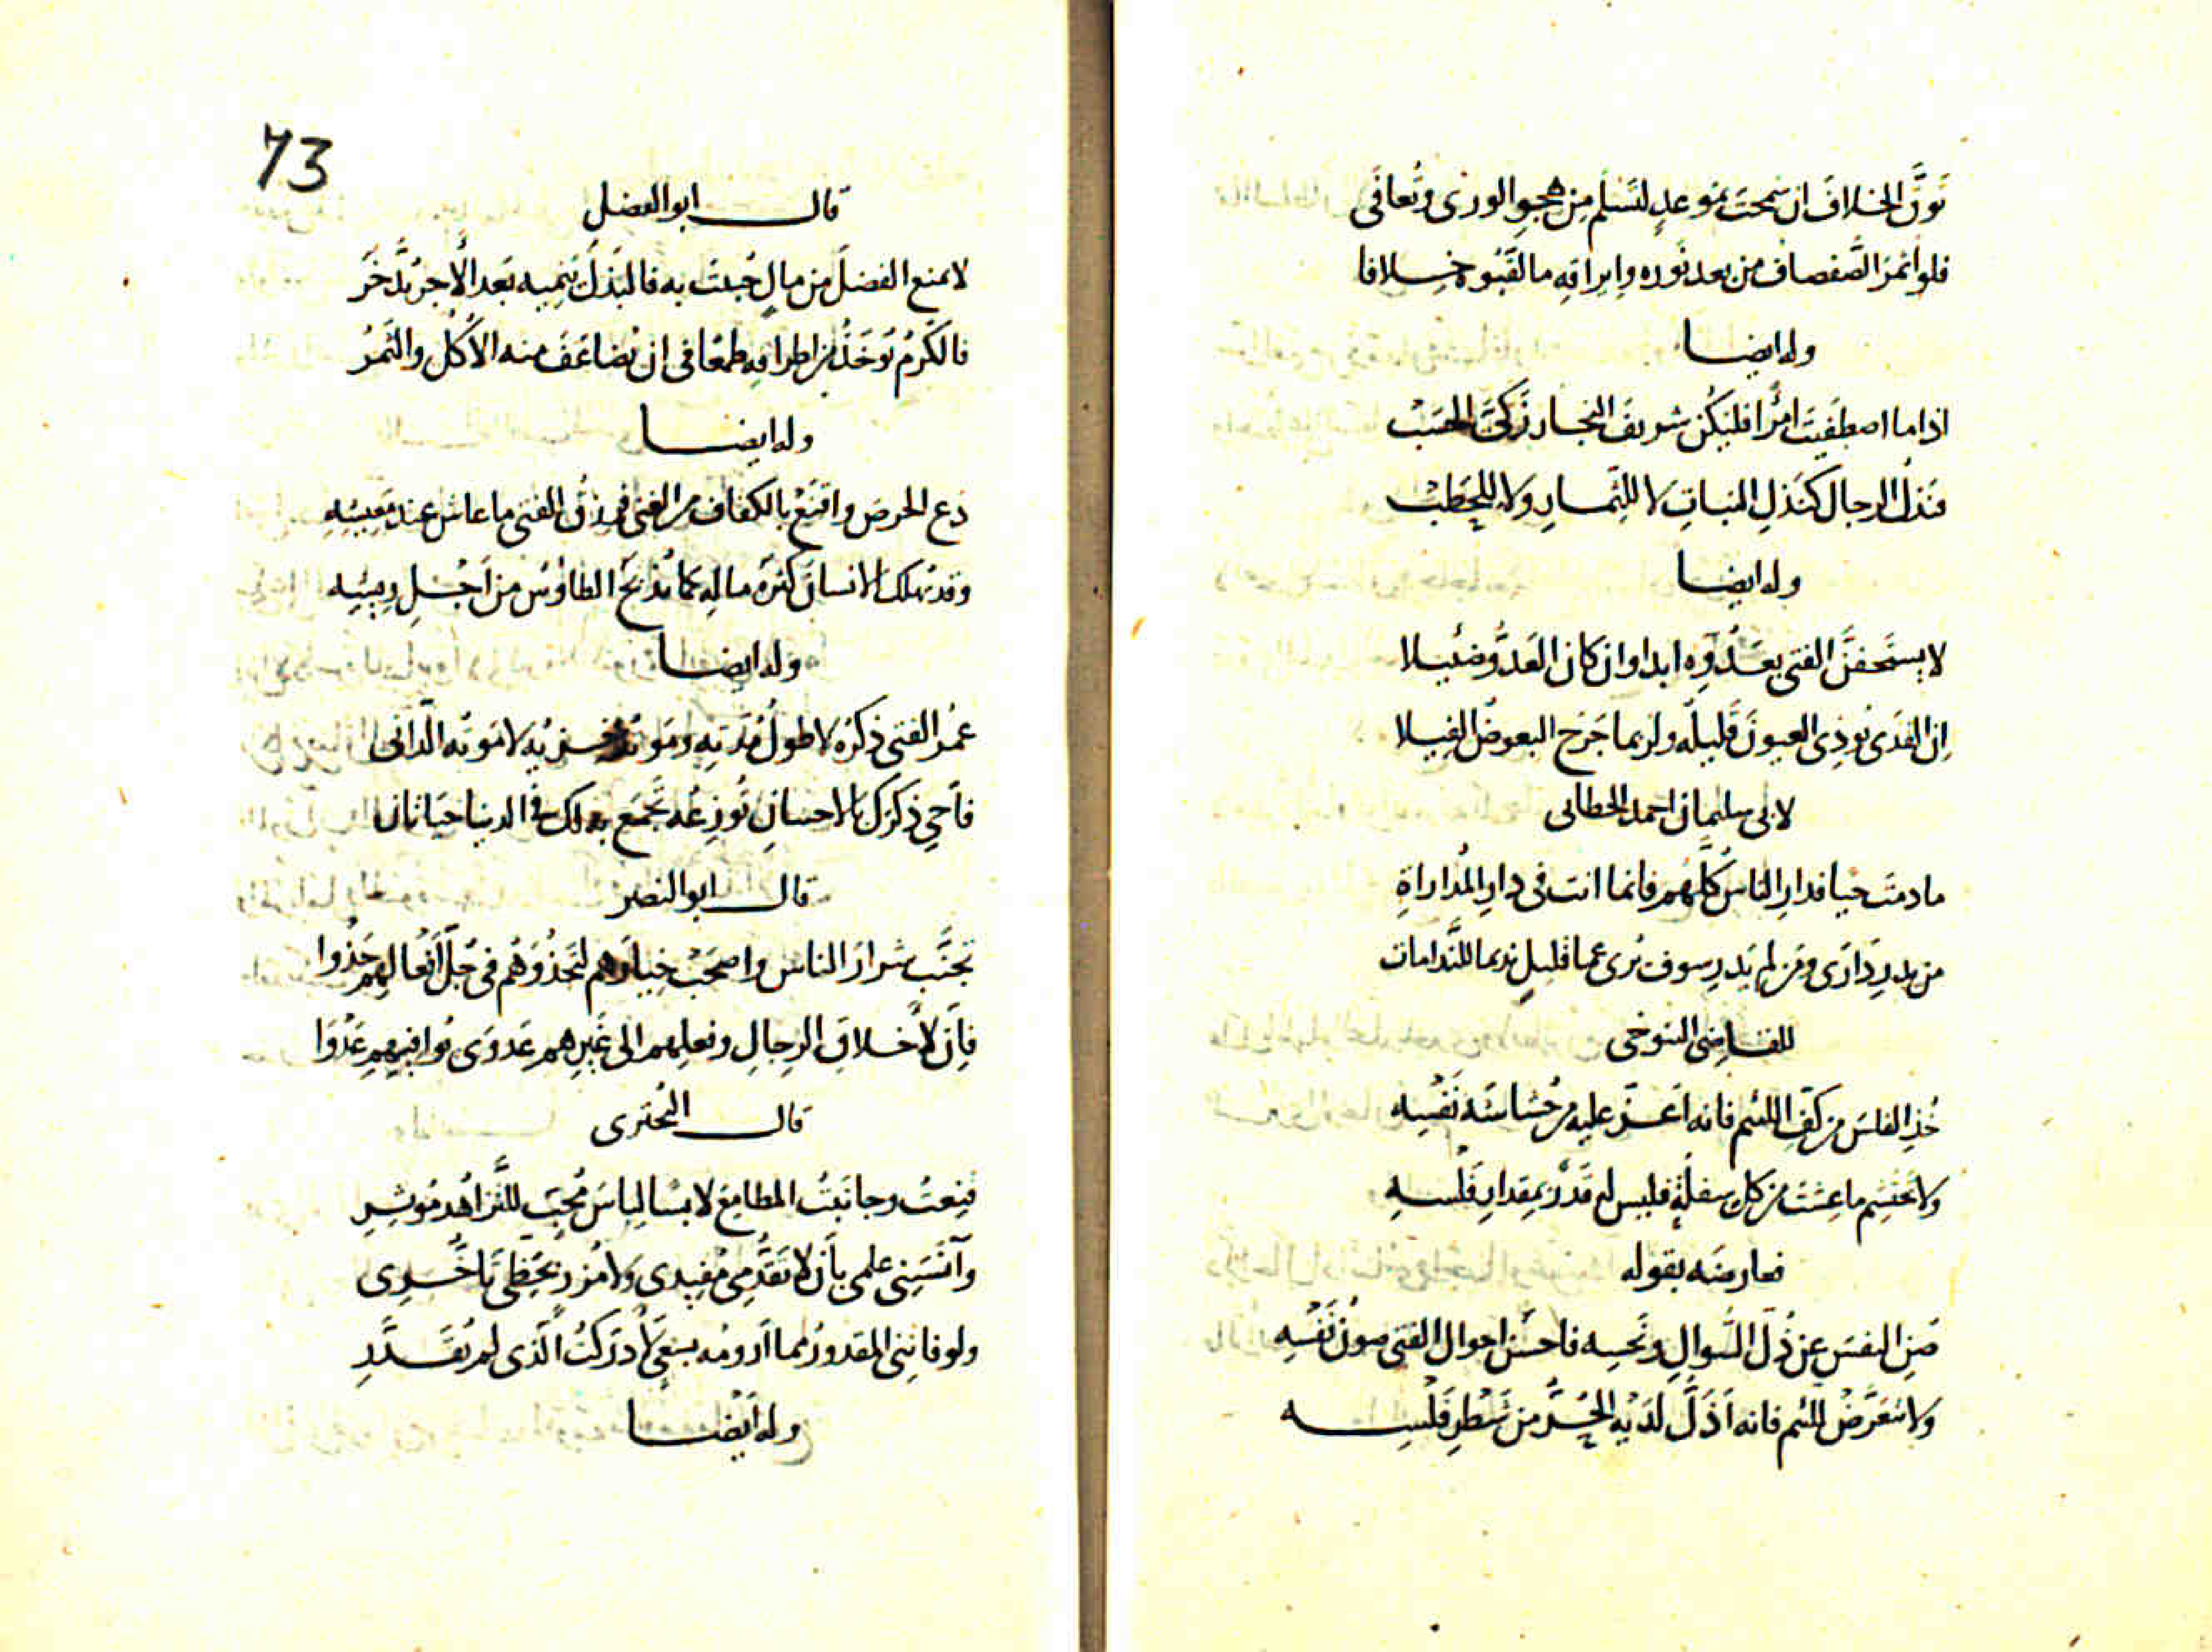 تَوَقَّ الخلافَ ان سمحتَ بمَوعدٍ لتَسلَم مِن هجوِ الورى وتُعافَى
فلو اثمرَ الصَّفصاف من بعد نَوره وايراقه ما لقّبُوهُ خلافا
وله ايضا
اذا ما اصطفيتَ امرًا فليكُن شريفَ النجار زَكىَّ الحَسَبْ
فنذلُ الرجال كنَذلِ النباتِ لا للثِّمارِ ولا للحَطَبْ
وله ايضا
لا يستحفنَّ الفتى بعَدُوِّه ابدا وان كان العَدُوُّ ضئيلا
ان القذى يُوذِى العيونَ قليلُه ولربما جَرَح البعوضُ الفيلا
لابى سليمان احمد الخطابى
ما دمتَ حيا فدارِ الناسَ كلَّهُم فانما انت فى دارِ المُداراةِ
من يدرِ دَارَى ومَن لم يَدرِ سوف يُرى عما قليلٍ نديما للنَّدامات
للقاضِى التنوخى
خُذِ الفاسَ من كفِّ اللئيم فانه اعَزّ عليه من حُشاشَة نَفْسِه
ولا تحتشِم ما عِشتَ من كل سِفلَةٍ فليس له قَدرٌ بمِقدارِ فَلْسِه
فعارضَه بقوله
صُنِ النفسَ عن ذُلّ السُّوالِ ونَحسِه فاحسَنُ احوال الفتى صَونُ نَفْسِه
ولا تتعَرَّضْ للئيم فانه اَذَلَّ لدَيْه الحُرُّ من شَطرِ فَلْسِه
73
قال ابو الفضل
لا تمنع الفضلَ من مالٍ حُبيتَ به فالبَذلُ يُنمِيه بَعد الاجر يُدَّخَرُ
فالكَرْمُ تُوخَذُ من اطرافِه طمعًا فى ان تُضاعَفَ منه الاُكُل والثَمَرُ
وله ايضا
دَع الحرصَ واقنَعْ بالكفاف من الغِنى فرِزقُ الفتى ما عاش عند مُعِيشِه
وقد يُهلك الانسانَ كثرةُ مالِه كما يُذبَحُ الطاوُسُ من اَجْلِ رِيشِه
وله ايضا
عمُر الفتى ذكرُه لا طولُ مُدّتِه ومَوتُه خِزيُه لا مَوتُه الدّانى
فاَحيِ ذكرَك بالاحسانِ تُودِعُه تُجمَع به لك فى الدنيا حَياتان
قال ابو النصر
تجنَّبْ شرارَ الناس واصحَبْ خيارَهم لتَحذُوَهُم فى جُلّ اَفعالهم حَذْوا
فاَن لاَخلاقِ الرِجالِ وفعلِهم الى غَيرِهم عَدوَى تُوافيهم عَدْوَا
قال البُحترى
قنِعتُ وجانَبتُ المطامِعَ لابسًا لِباسَ مُحِبٍّ للنَّزاهةِ مُوثِرِ
وآنَسَنِى علمى بأن لا تقَدُّمِى مُفِيدى ولا مُزرٍ بحَظِّى تَأخُّرِى
ولو فاتنى المقدورُ مما اَرومُه بسَعيٍ لاَدرَكتُ الّذى لم يُقَدَّرِ
وله اَيضا